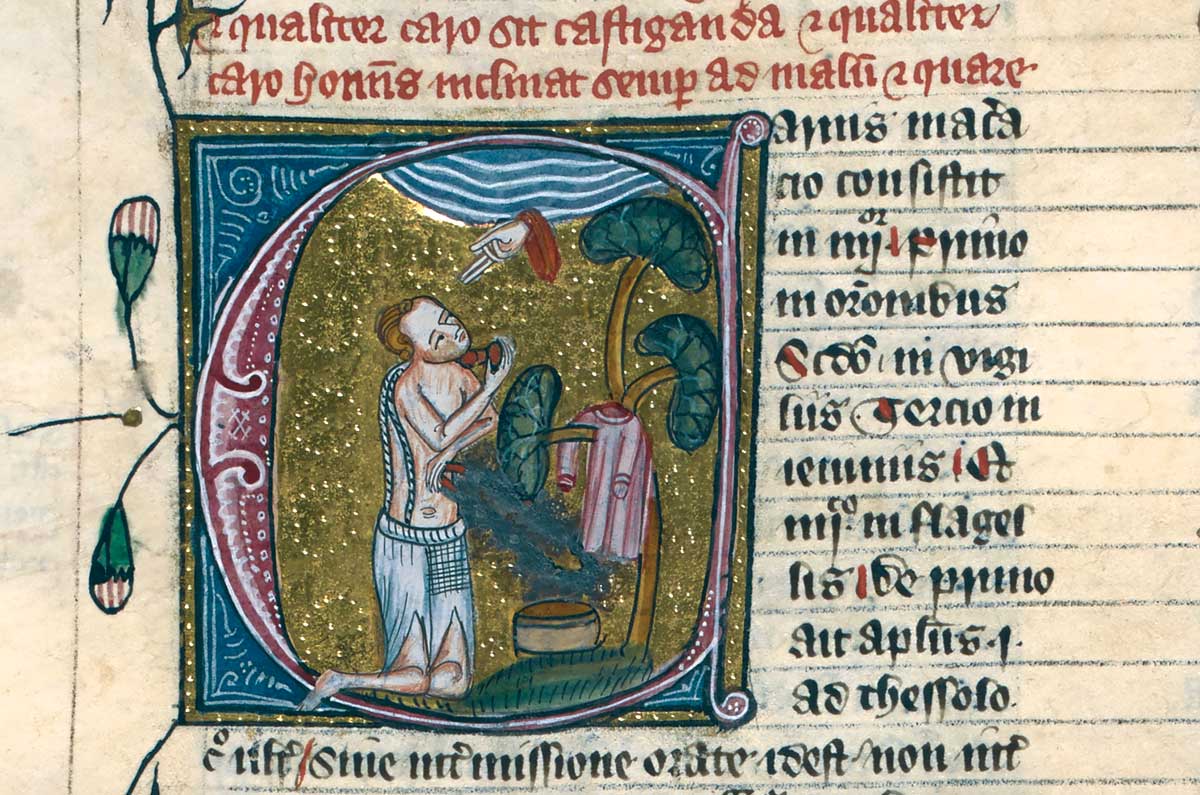 ⁊ qualiter caro sit castiganda ⁊ qualiter
caro hoĩs inclinat semꝑ ad malũ ⁊ quare
Carnis mac̃a
cio consistit
in iiijor primo
in orõnibus
Scdõ in vigi
liis Tercio in
ieiuniis Et
iiijo in flagel
lis De primo
ait apl̃us .j.
ad thessolo.
Sine int̃missione orate idest non int̃